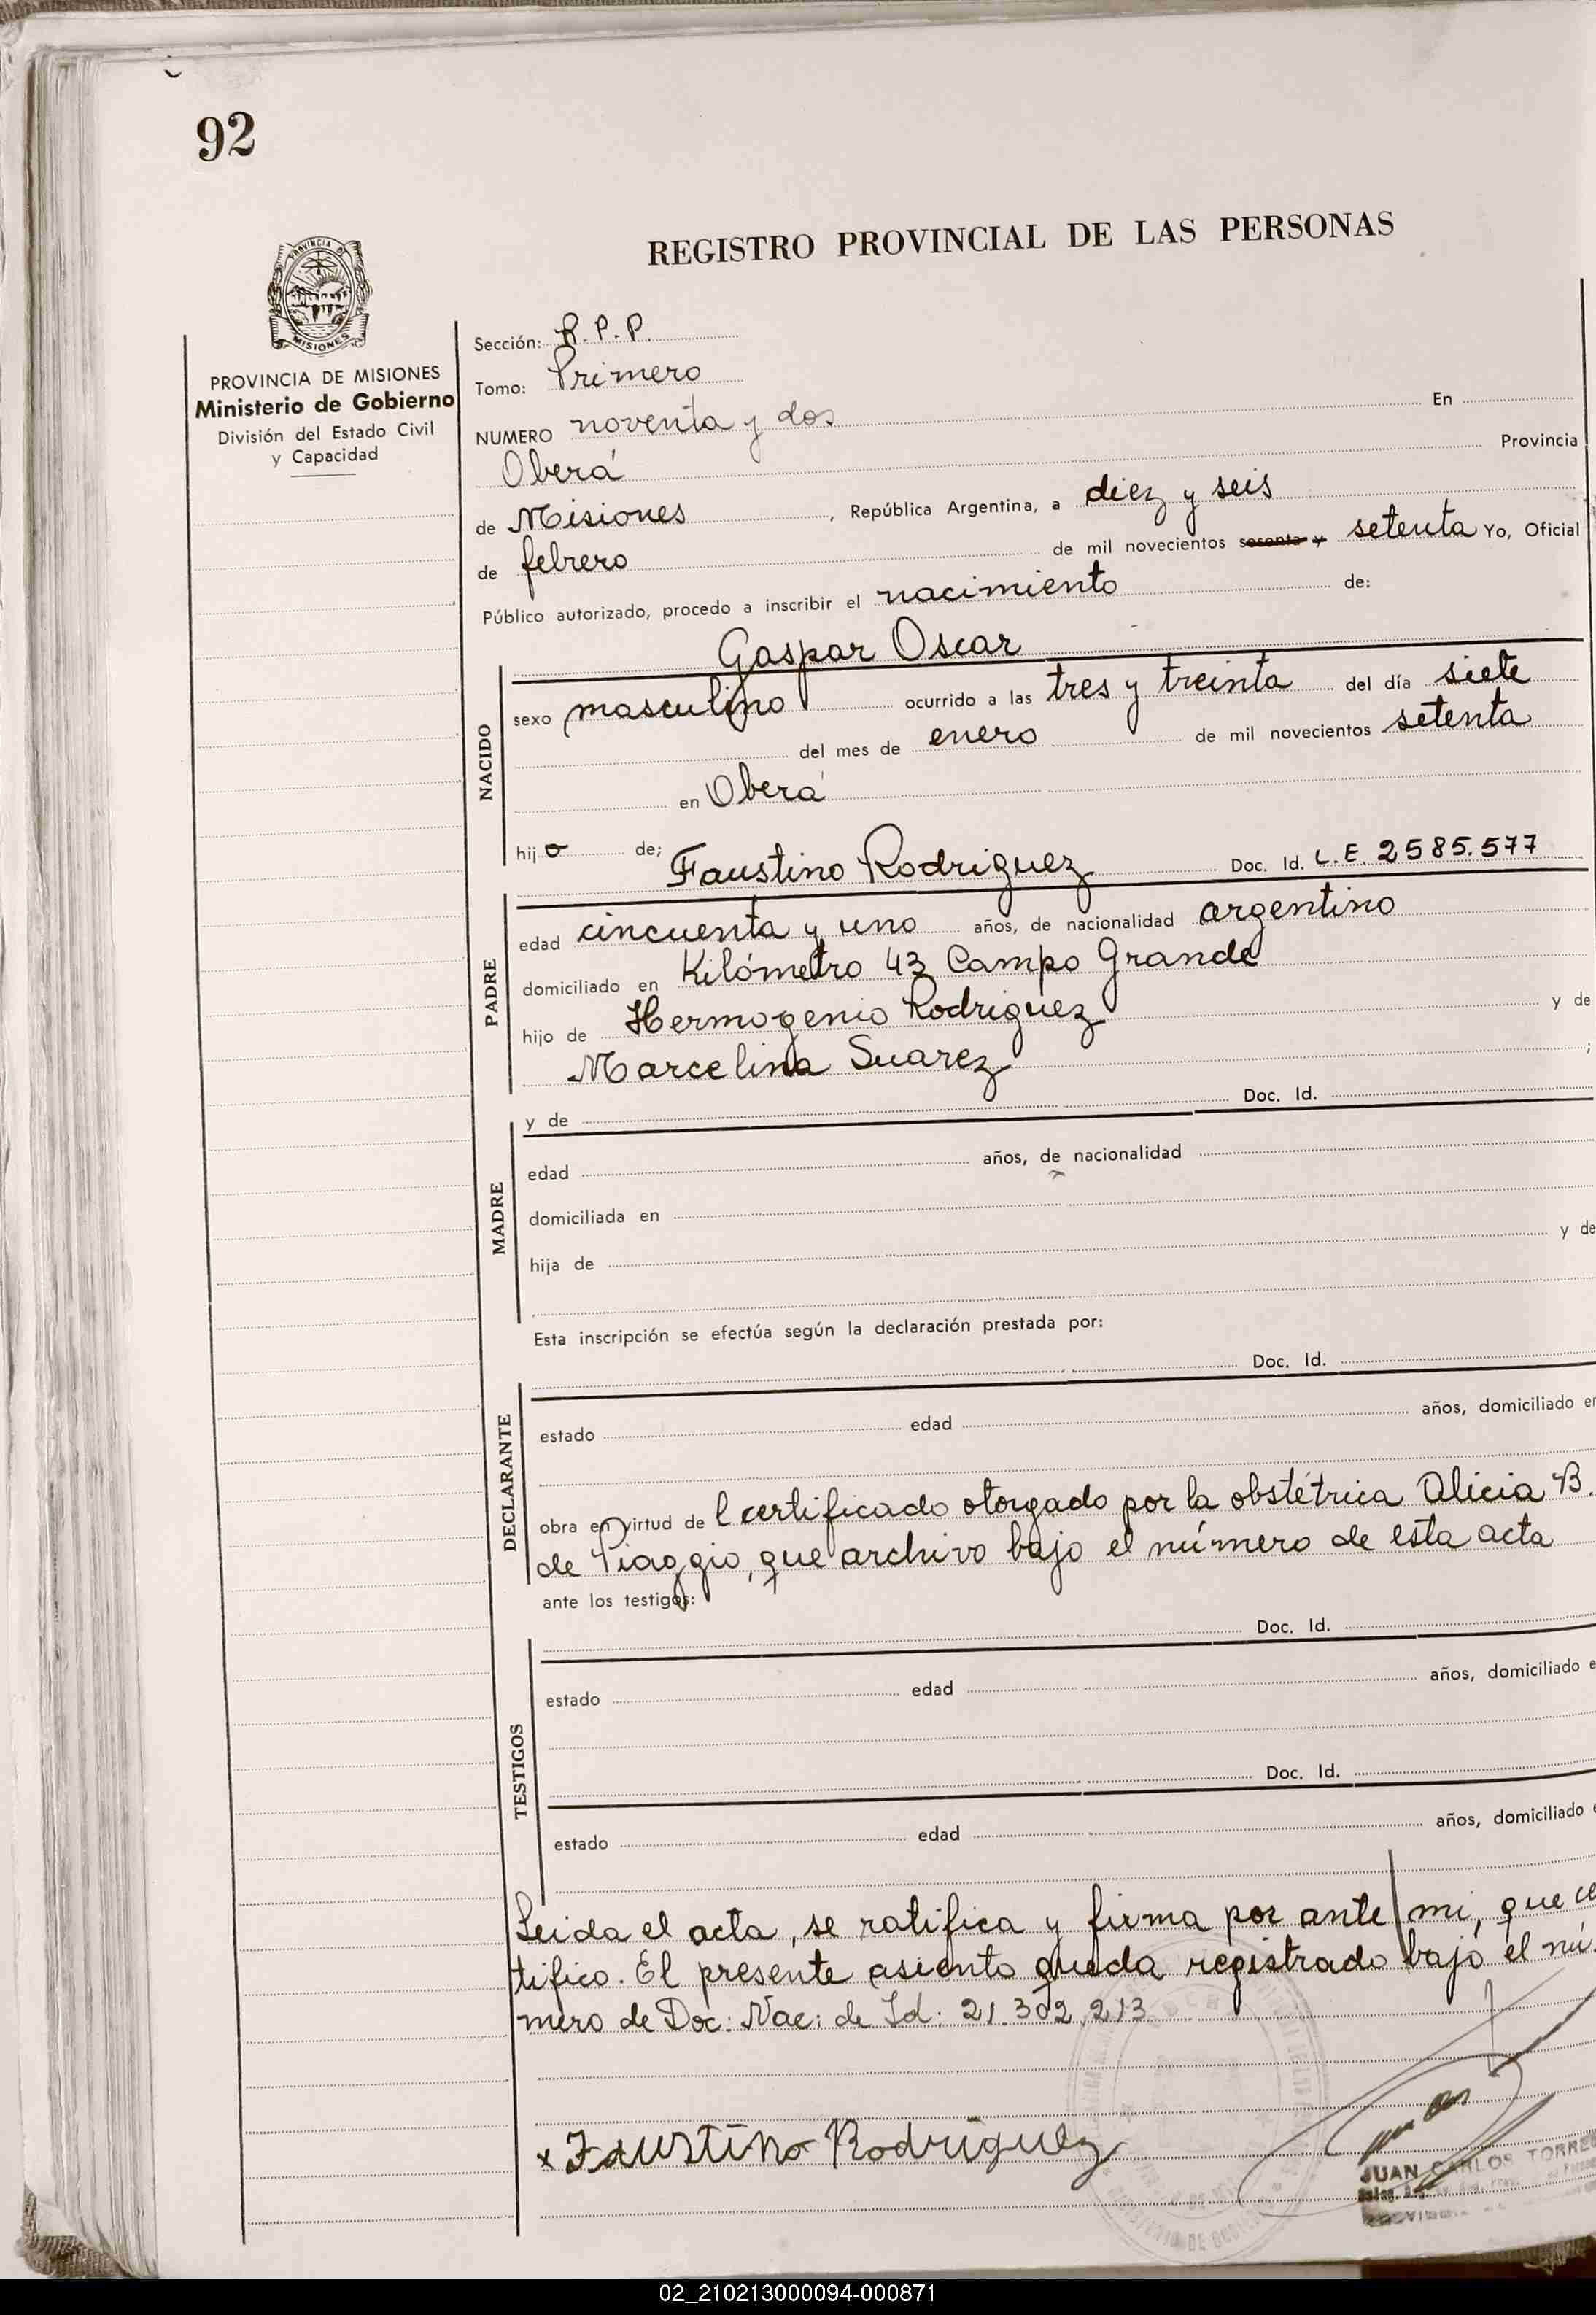 92
REGISTRO PROVINCIAL DE LAS PERSONAS
PROVINCIA DE MISIONES
MISIONES
PROVINCIA DE MISIONES
Ministerio de Gobierno
División del Estado Civil
y Capacidad
Sección: R.P.P.
Tomo: Primero
NUMERO noventa y dos En
Oberá Provincia
de Misiones, República Argentina, a diez y seis
de febrero de mil novecientos sesenta y setenta Yo, Oficial
Público autorizado, procedo a inscribir el nacimiento de:
Gaspar Oscar
NACIDO
sexo masculino ocurrido a las tres y treinta del día siete
del mes de enero de mil novecientos setenta
en Oberá
hijo de; Faustino Rodriguez Doc. Id. L.E. 2585.577
PADRE
edad cincuenta y uno años, de nacionalidad argentino
domiciliado en Kilómetro 43 Campo Grande
hijo de Hermogenio Rodriguez y de
Marcelina Suarez ;
y de Doc. Id.
MADRE
edad años, de nacionalidad
domiciliada en
hija de y de
Esta inscripción se efectúa según la declaración prestada por:
Doc. Id.
DECLARANTE
estado edad años, domiciliado en
obra en virtud del certificado otorgado por la obstétrica Alicia B.
de Piaggio, que archivo bajo el número de esta acta
ante los testigos:
Doc. Id.
TESTIGOS
estado edad años, domiciliado e
Doc. Id.
estado edad años, domiciliado e
Leida el acta, se ratifica y firma por ante mi, que ce
tifico. El presente asiento queda registrado bajo el nú.
mero de Doc: Nac: de Id: 21.302.213
x Faustino Rodriguez
JUAN CARLOS TORRES
02_210213000094-000871